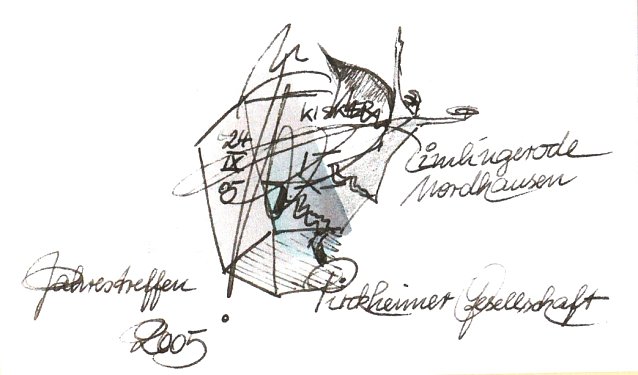 24
IX
05
Limlingerode
Nordhausen
Jahrestreffen
2005
Pirckheimer Gesellschaft